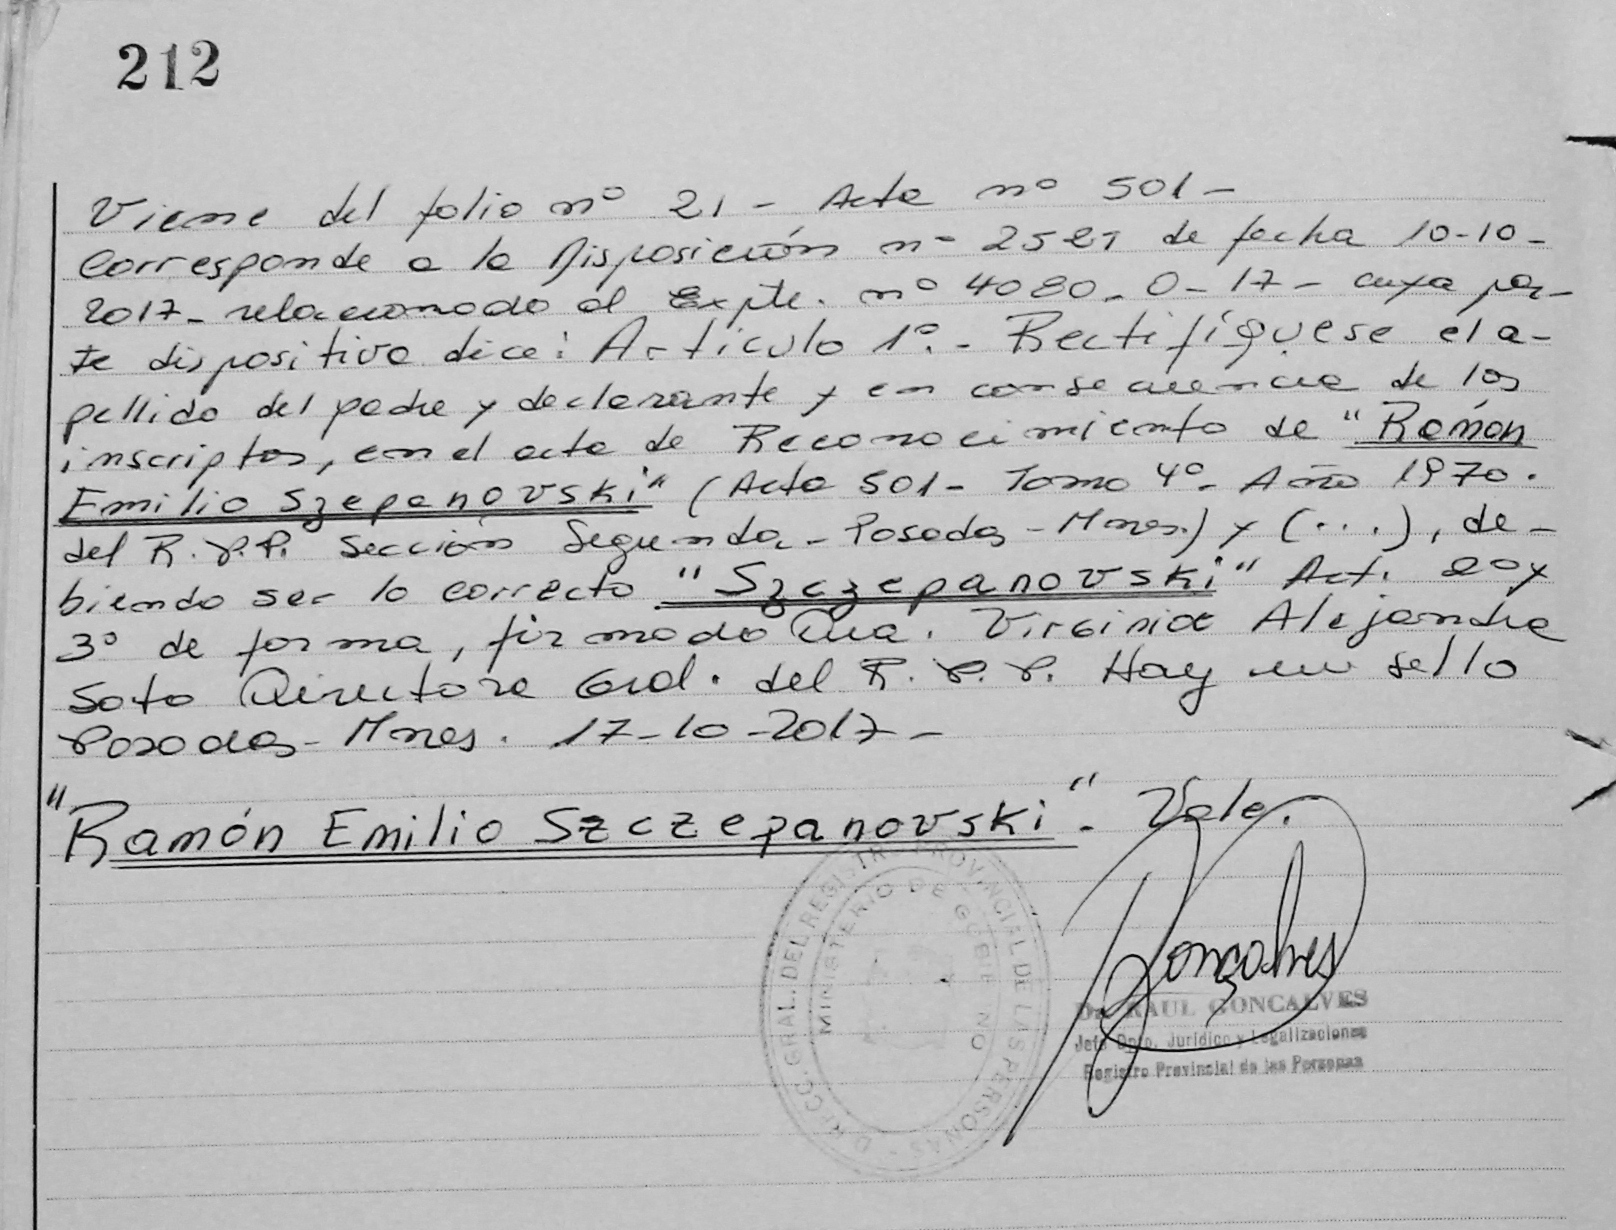 212
Viene del folio nº 21 - Acta nº 501 -
Corresponde a la Disposición nº 2521 de fecha 10-10-
2017- relacionado al Expte. nº 4080-0-17- cuya par-
te dispositiva dice: Artículo 1º.- Rectifíquese el a-
pellido del padre y declarante y en consecuencia de los
inscriptos, en el acta de Reconocimiento de "Ramón
Emilio Szepanovski" (Acta 501- Tomo 4º- Año 1970.
del R.P.P. Sección Segunda - Posadas - Mnes.) y (...), de-
biendo ser lo correcto "Szczepanovski" Art. 2º y
3º de forma, firmado Dra. Virginia Alejandra
Soto Directora Gral. del R.P.P. Hay un sello
Posadas - Mnes. 17-10-2017-
"Ramón Emilio Szczepanovski". Vale.
Gonçalves
DIRECC. GRAL. DEL REGISTRO PROVINCIAL DE LAS PERSONAS
MINISTERIO DE GOBIERNO
Dr. RAUL GONCALVES
Jefe Dpto. Jurídico y Legalizaciones
Registro Provincial de las Personas